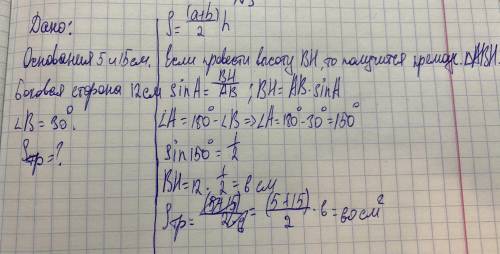 Дано:
Основания 5 и 15см.
боковая сторона 12см
∠B = 30°.
Sтр = ?
S = (a+b)/2 h
Если провести высоту BH, то получится прямоуг. ΔABH.
sin A = BH/AB ; BH = AB · sin A
∠A = 180° - ∠B => ∠A = 180° - 30° = 150°
sin 150° = 1/2
BH = 12 · 1/2 = 6 см
Sтр = (5+15)/2·6 = (5+15)/2 · 6 = 60 см²